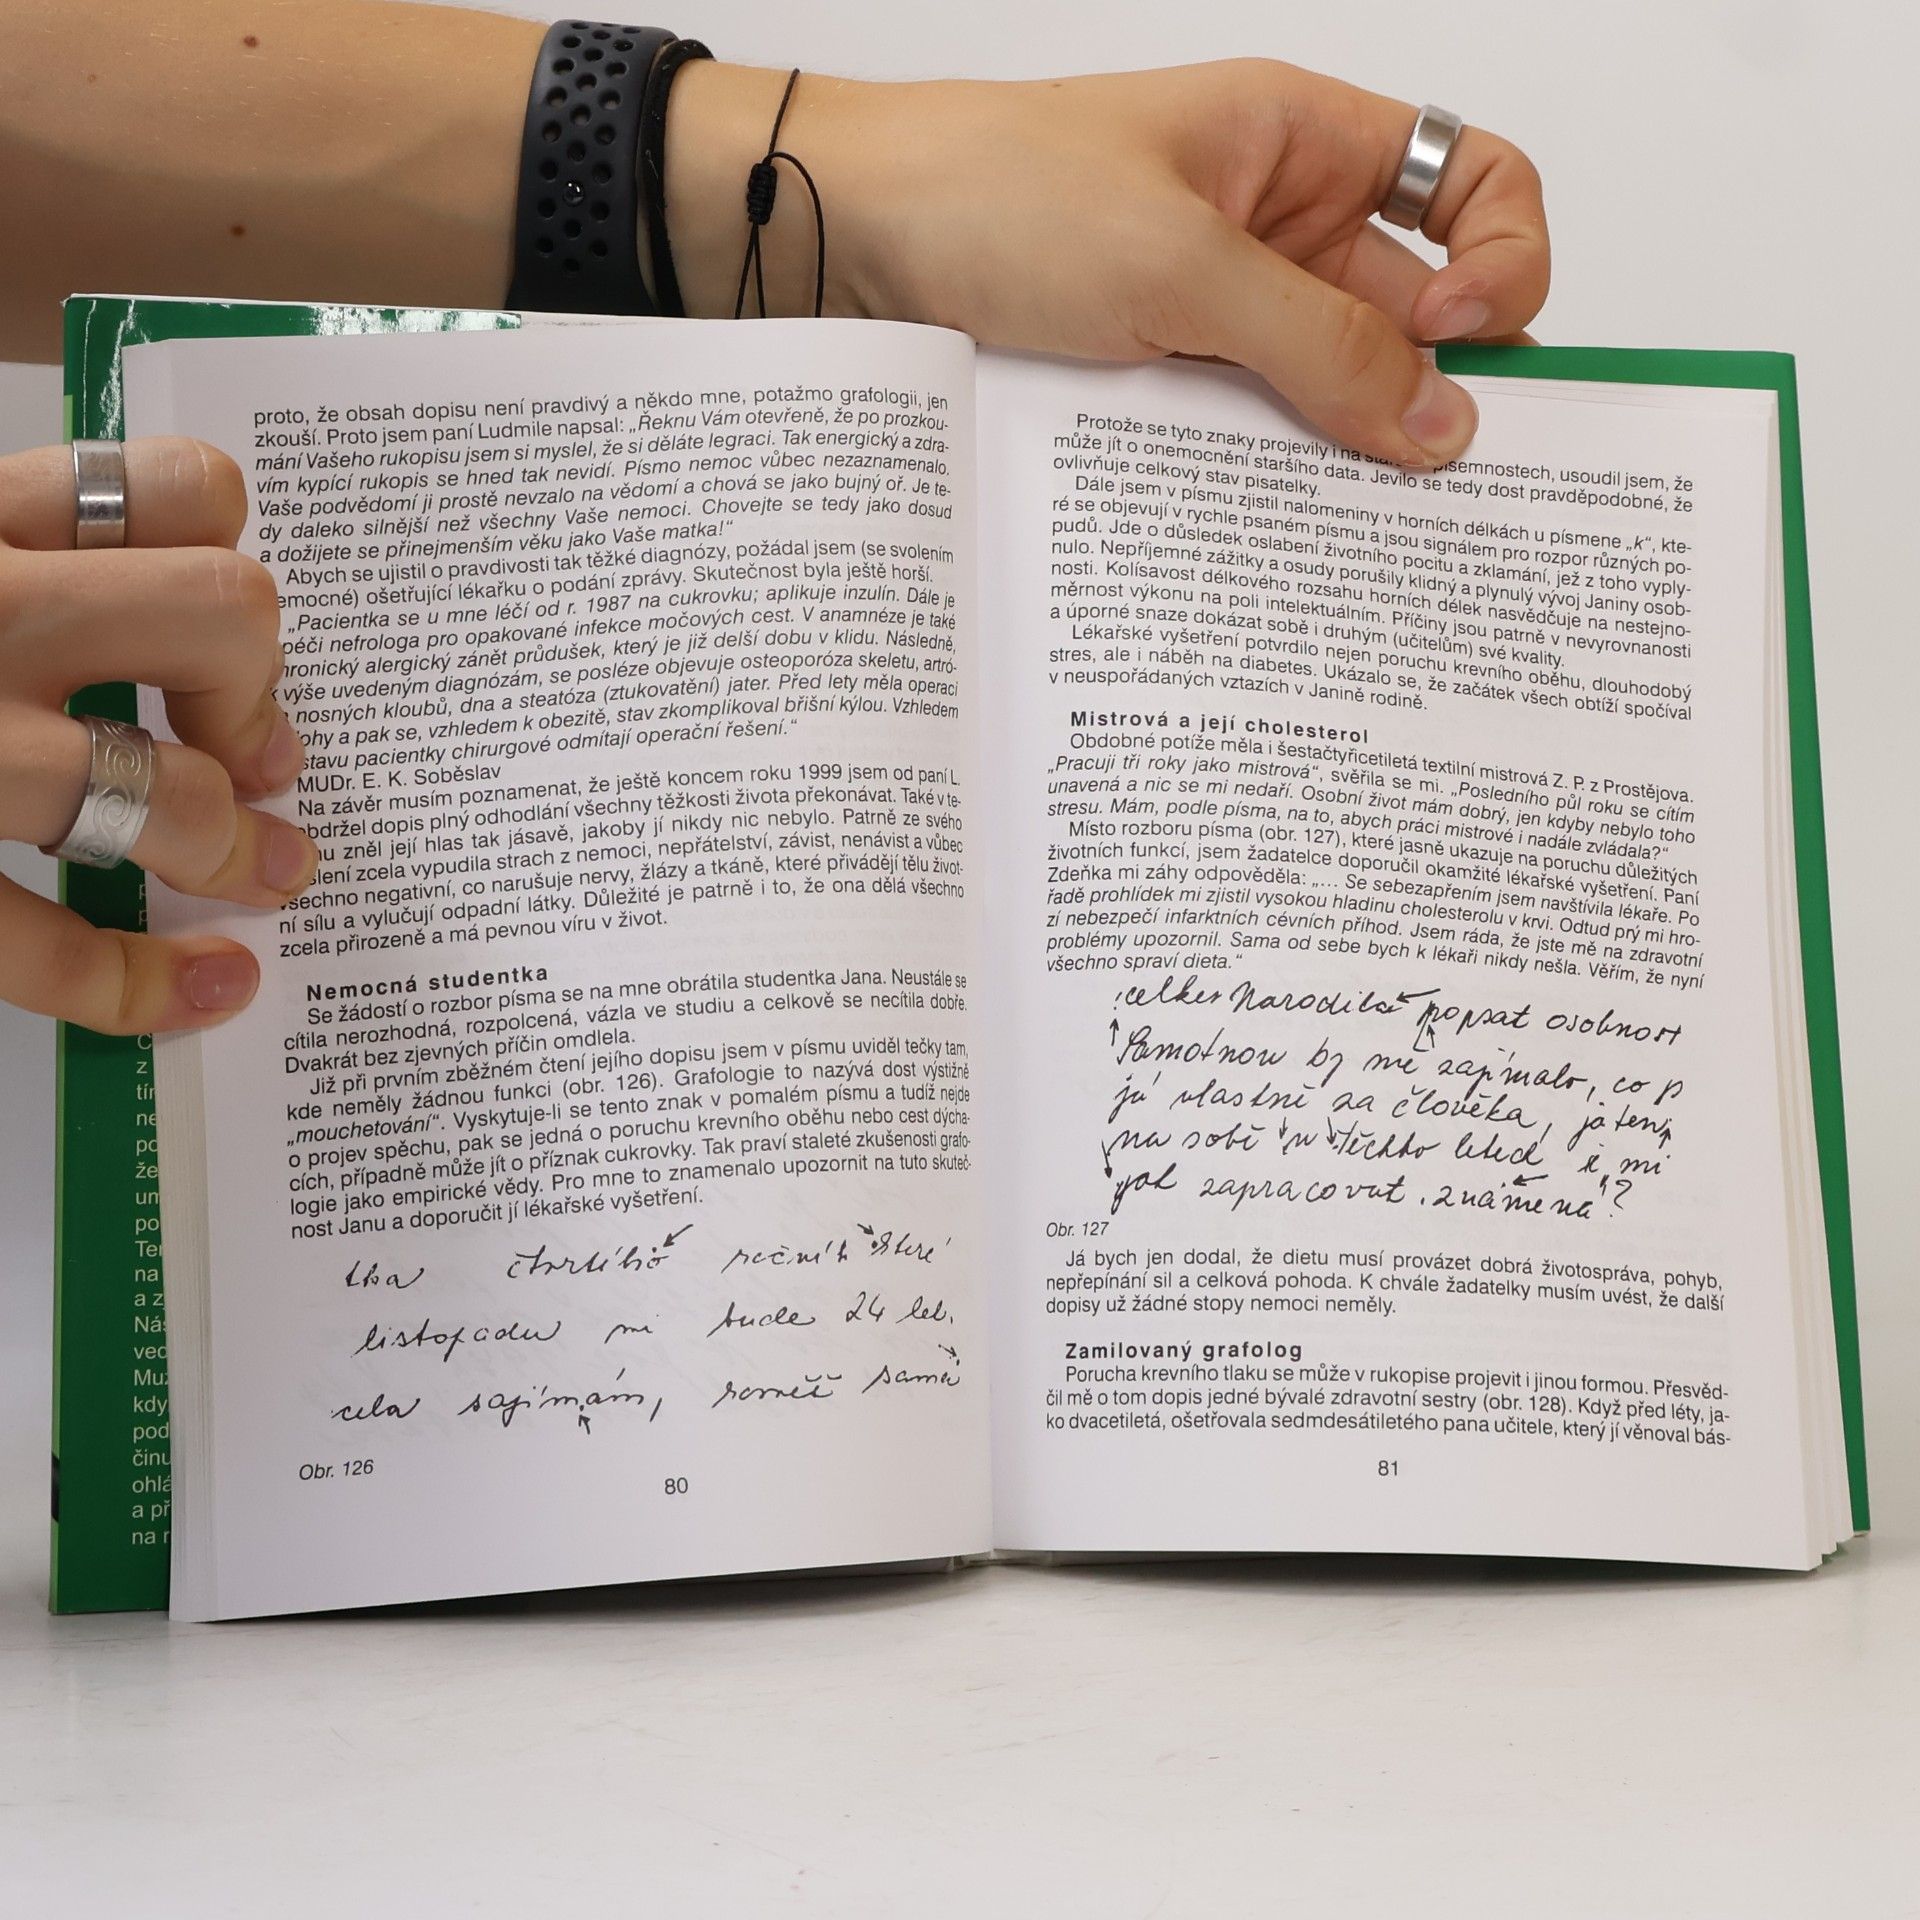 proto, že obsah dopisu není pravdivý a někdo mne, potažmo grafologii, jen
zkouší. Proto jsem paní Ludmile napsal: „Řeknu Vám otevřeně, že po prozkou-
mání Vašeho rukopisu jsem si myslel, že si děláte legraci. Tak energický a zdra-
vím kypící rukopis se hned tak nevidí. Písmo nemoc vůbec nezaznamenalo.
Vaše podvědomí ji prostě nevzalo na vědomí a chová se jako bujný oř. Je te-
dy daleko silnější než všechny Vaše nemoci. Chovejte se tedy jako dosud
a dožijete se přinejmenším věku jako Vaše matka!“
Abych se ujistil o pravdivosti tak těžké diagnózy, požádal jsem (se svolením
emocné) ošetřující lékařku o podání zprávy. Skutečnost byla ještě horší.
„Pacientka se u mne léčí od r. 1987 na cukrovku; aplikuje inzulín. Dále je
péči nefrologa pro opakované infekce močových cest. V anamnéze je také
hronický alergický zánět průdušek, který je již delší dobu v klidu. Následně,
k výše uvedeným diagnózám, se posléze objevuje osteoporóza skeletu, artró-
nosných kloubů, dna a steatóza (ztukovatění) jater. Před lety měla operaci
ohy a pak se, vzhledem k obezitě, stav zkomplikoval břišní kýlou. Vzhledem
stavu pacientky chirurgové odmítají operační řešení.“
MUDr. E. K. Soběslav
Na závěr musím poznamenat, že ještě koncem roku 1999 jsem od paní L.
obdržel dopis plný odhodlání všechny těžkosti života překonávat. Také v te-
nu zněl její hlas tak jásavě, jakoby jí nikdy nic nebylo. Patrně ze svého
šlení zcela vypudila strach z nemoci, nepřátelství, závist, nenávist a vůbec
všechno negativní, co narušuje nervy, žlázy a tkáně, které přivádějí tělu život-
ní sílu a vylučují odpadní látky. Důležité je patrně i to, že ona dělá všechno
zcela přirozeně a má pevnou víru v život.
Nemocná studentka
Se žádostí o rozbor písma se na mne obrátila studentka Jana. Neustále se
cítila nerozhodná, rozpolcená, vázla ve studiu a celkově se necítila dobře.
Dvakrát bez zjevných příčin omdlela.
Již při prvním zběžném čtení jejího dopisu jsem v písmu uviděl tečky tam,
kde neměly žádnou funkci (obr. 126). Grafologie to nazývá dost výstižně
„mouchetování“. Vyskytuje-li se tento znak v pomalém písmu a tudíž nejde
o projev spěchu, pak se jedná o poruchu krevního oběhu nebo cest dýcha-
cích, případně může jít o příznak cukrovky. Tak praví staleté zkušenosti grafo-
logie jako empirické vědy. Pro mne to znamenalo upozornit na tuto skuteč-
nost Janu a doporučit jí lékařské vyšetření.
tka čtvrtého ročník které
listopadu mi bude 24 let.
cela zajímám, rovněž samá
Obr. 126
80
Protože se tyto znaky projevily i na star písemnostech, usoudil jsem, že
může jít o onemocnění staršího data. Jevilo se tedy dost pravděpodobné, že
ovlivňuje celkový stav pisatelky.
Dále jsem v písmu zjistil nalomeniny v horních délkách u písmene „k“, kte-
ré se objevují v rychle psaném písmu a jsou signálem pro rozpor různých po-
pudů. Jde o důsledek oslabení životního pocitu a zklamání, jež z toho vyply-
nulo. Nepříjemné zážitky a osudy porušily klidný a plynulý vývoj Janiny osob-
nosti. Kolísavost délkového rozsahu horních délek nasvědčuje na nestejno-
měrnost výkonu na poli intelektuálním. Příčiny jsou patrně v nevyrovnanosti
a úporné snaze dokázat sobě i druhým (učitelům) své kvality.
Lékařské vyšetření potvrdilo nejen poruchu krevního oběhu, dlouhodobý
stres, ale i náběh na diabetes. Ukázalo se, že začátek všech obtíží spočíval
v neuspořádaných vztazích v Janině rodině.
Mistrová a její cholesterol
Obdobné potíže měla i šestačtyřicetiletá textilní mistrová Z. P. z Prostějova.
„Pracuji tři roky jako mistrová“, svěřila se mi. „Posledního půl roku se cítím
unavená a nic se mi nedaří. Osobní život mám dobrý, jen kdyby nebylo toho
stresu. Mám, podle písma, na to, abych práci mistrové i nadále zvládala?“
Místo rozboru písma (obr. 127), které jasně ukazuje na poruchu důležitých
životních funkcí, jsem žadatelce doporučil okamžité lékařské vyšetření. Paní
Zdeňka mi záhy odpověděla: „... Se sebezapřením jsem navštívila lékaře. Po
řadě prohlídek mi zjistil vysokou hladinu cholesterolu v krvi. Odtud prý mi hro-
zí nebezpečí infarktních cévních příhod. Jsem ráda, že jste mě na zdravotní
problémy upozornil. Sama od sebe bych k lékaři nikdy nešla. Věřím, že nyní
všechno spraví dieta.“
celkes Narodila popsat osobnost
Samotnou by mě zajímalo, co p
já vlastně za člověka, já ten
na sobě v těchto letech mi
jak zapracovat. známená?
Obr. 127
Já bych jen dodal, že dietu musí provázet dobrá životospráva, pohyb,
nepřepínání sil a celková pohoda. K chvále žadatelky musím uvést, že další
dopisy už žádné stopy nemoci neměly.
Zamilovaný grafolog
Porucha krevního tlaku se může v rukopise projevit i jinou formou. Přesvěd-
čil mě o tom dopis jedné bývalé zdravotní sestry (obr. 128). Když před léty, ja-
ko dvacetiletá, ošetřovala sedmdesátiletého pana učitele, který jí věnoval bás-
81